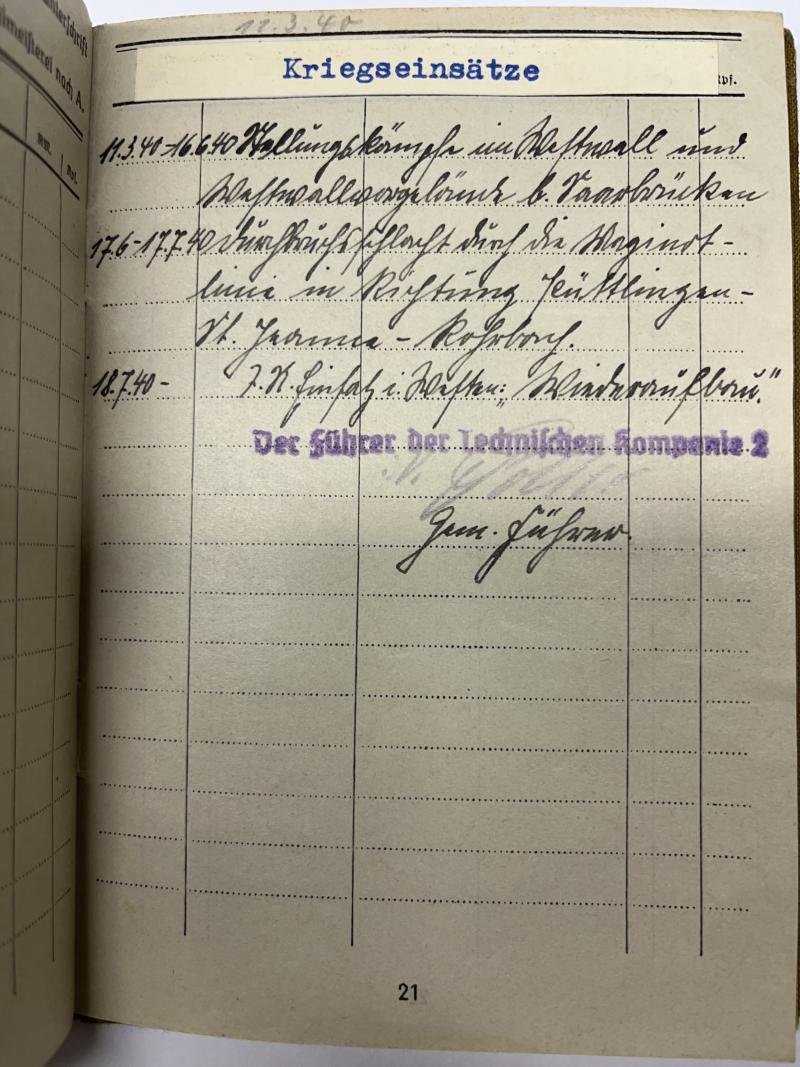 11.3.40
Kriegseinsätze
Rpf.
nterschrift
lmeisterei nach A.
11.3.40-16.6.40 Stellungskämpfe im Westwall und
Westwallvorgelände b. Saarbrücken
17.6-17.7.40 Durchbruchsschlacht durch die Maginot-
linie in Richtung Püttlingen-
St. Jeanne - Rohrbach.
18.7.40- Z. K. Einsatz i. Westen: „Wiederaufbau."
Der Führer der Technischen Kompanie 2
Gem. Führer.
21